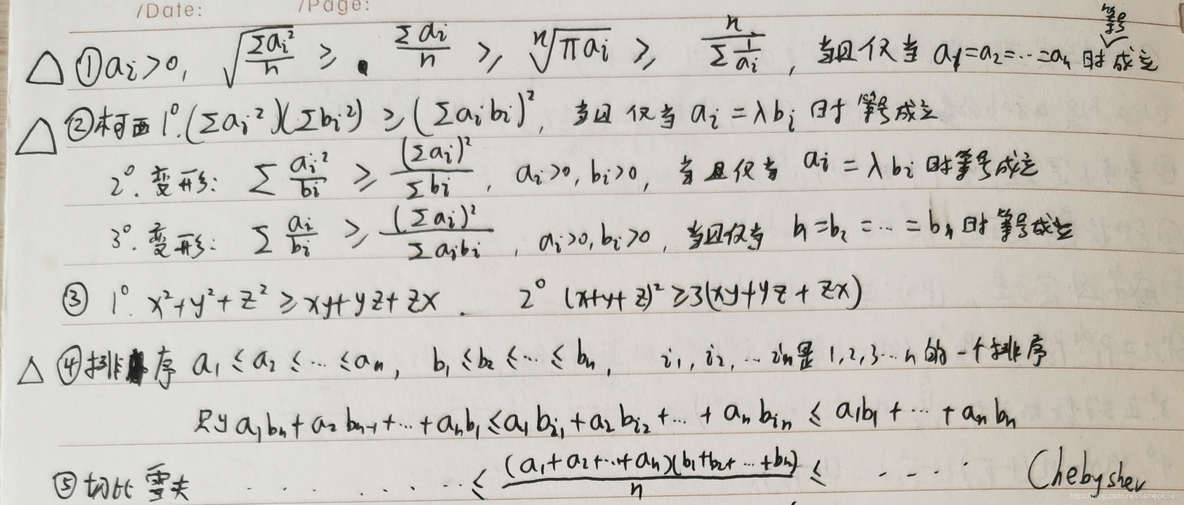 /Date: /Page:
△ ① aᵢ>0, √(Σaᵢ²/n) ≥ Σaᵢ/n ≥ ⁿ√(πaᵢ) ≥ n/(Σ 1/aᵢ), 当且仅当 a₁=a₂=…=aₙ 时等号成立
△ ② 柯西 1°. (Σaᵢ²)(Σbᵢ²) ≥ (Σaᵢbᵢ)², 当且仅当 aᵢ=λbᵢ 时等号成立
2°. 变形: Σ aᵢ²/bᵢ ≥ (Σaᵢ)²/Σbᵢ, aᵢ>0, bᵢ>0, 当且仅当 aᵢ=λbᵢ 时等号成立
3°. 变形: Σ aᵢ/bᵢ ≥ (Σaᵢ)²/Σaᵢbᵢ, aᵢ>0, bᵢ>0, 当且仅当 b₁=b₂=…=bₙ 时等号成立
③ 1°. x²+y²+z² ≥ xy+yz+zx. 2° (x+y+z)² ≥3(xy+yz+zx)
△ ④ 排序 a₁≤a₂≤…≤aₙ, b₁≤b₂≤…≤bₙ, i₁, i₂, … iₙ是 1,2,3…n 的一个排序
则 a₁bₙ+a₂bₙ₋₁+…+aₙb₁ ≤ a₁bᵢ₁+a₂bᵢ₂+…+aₙbᵢₙ ≤ a₁b₁+…+aₙbₙ
⑤ 切比雪夫 ········ ≤ (a₁+a₂+…+aₙ)(b₁+b₂+…+bₙ)/n ≤ ···· Chebyshev